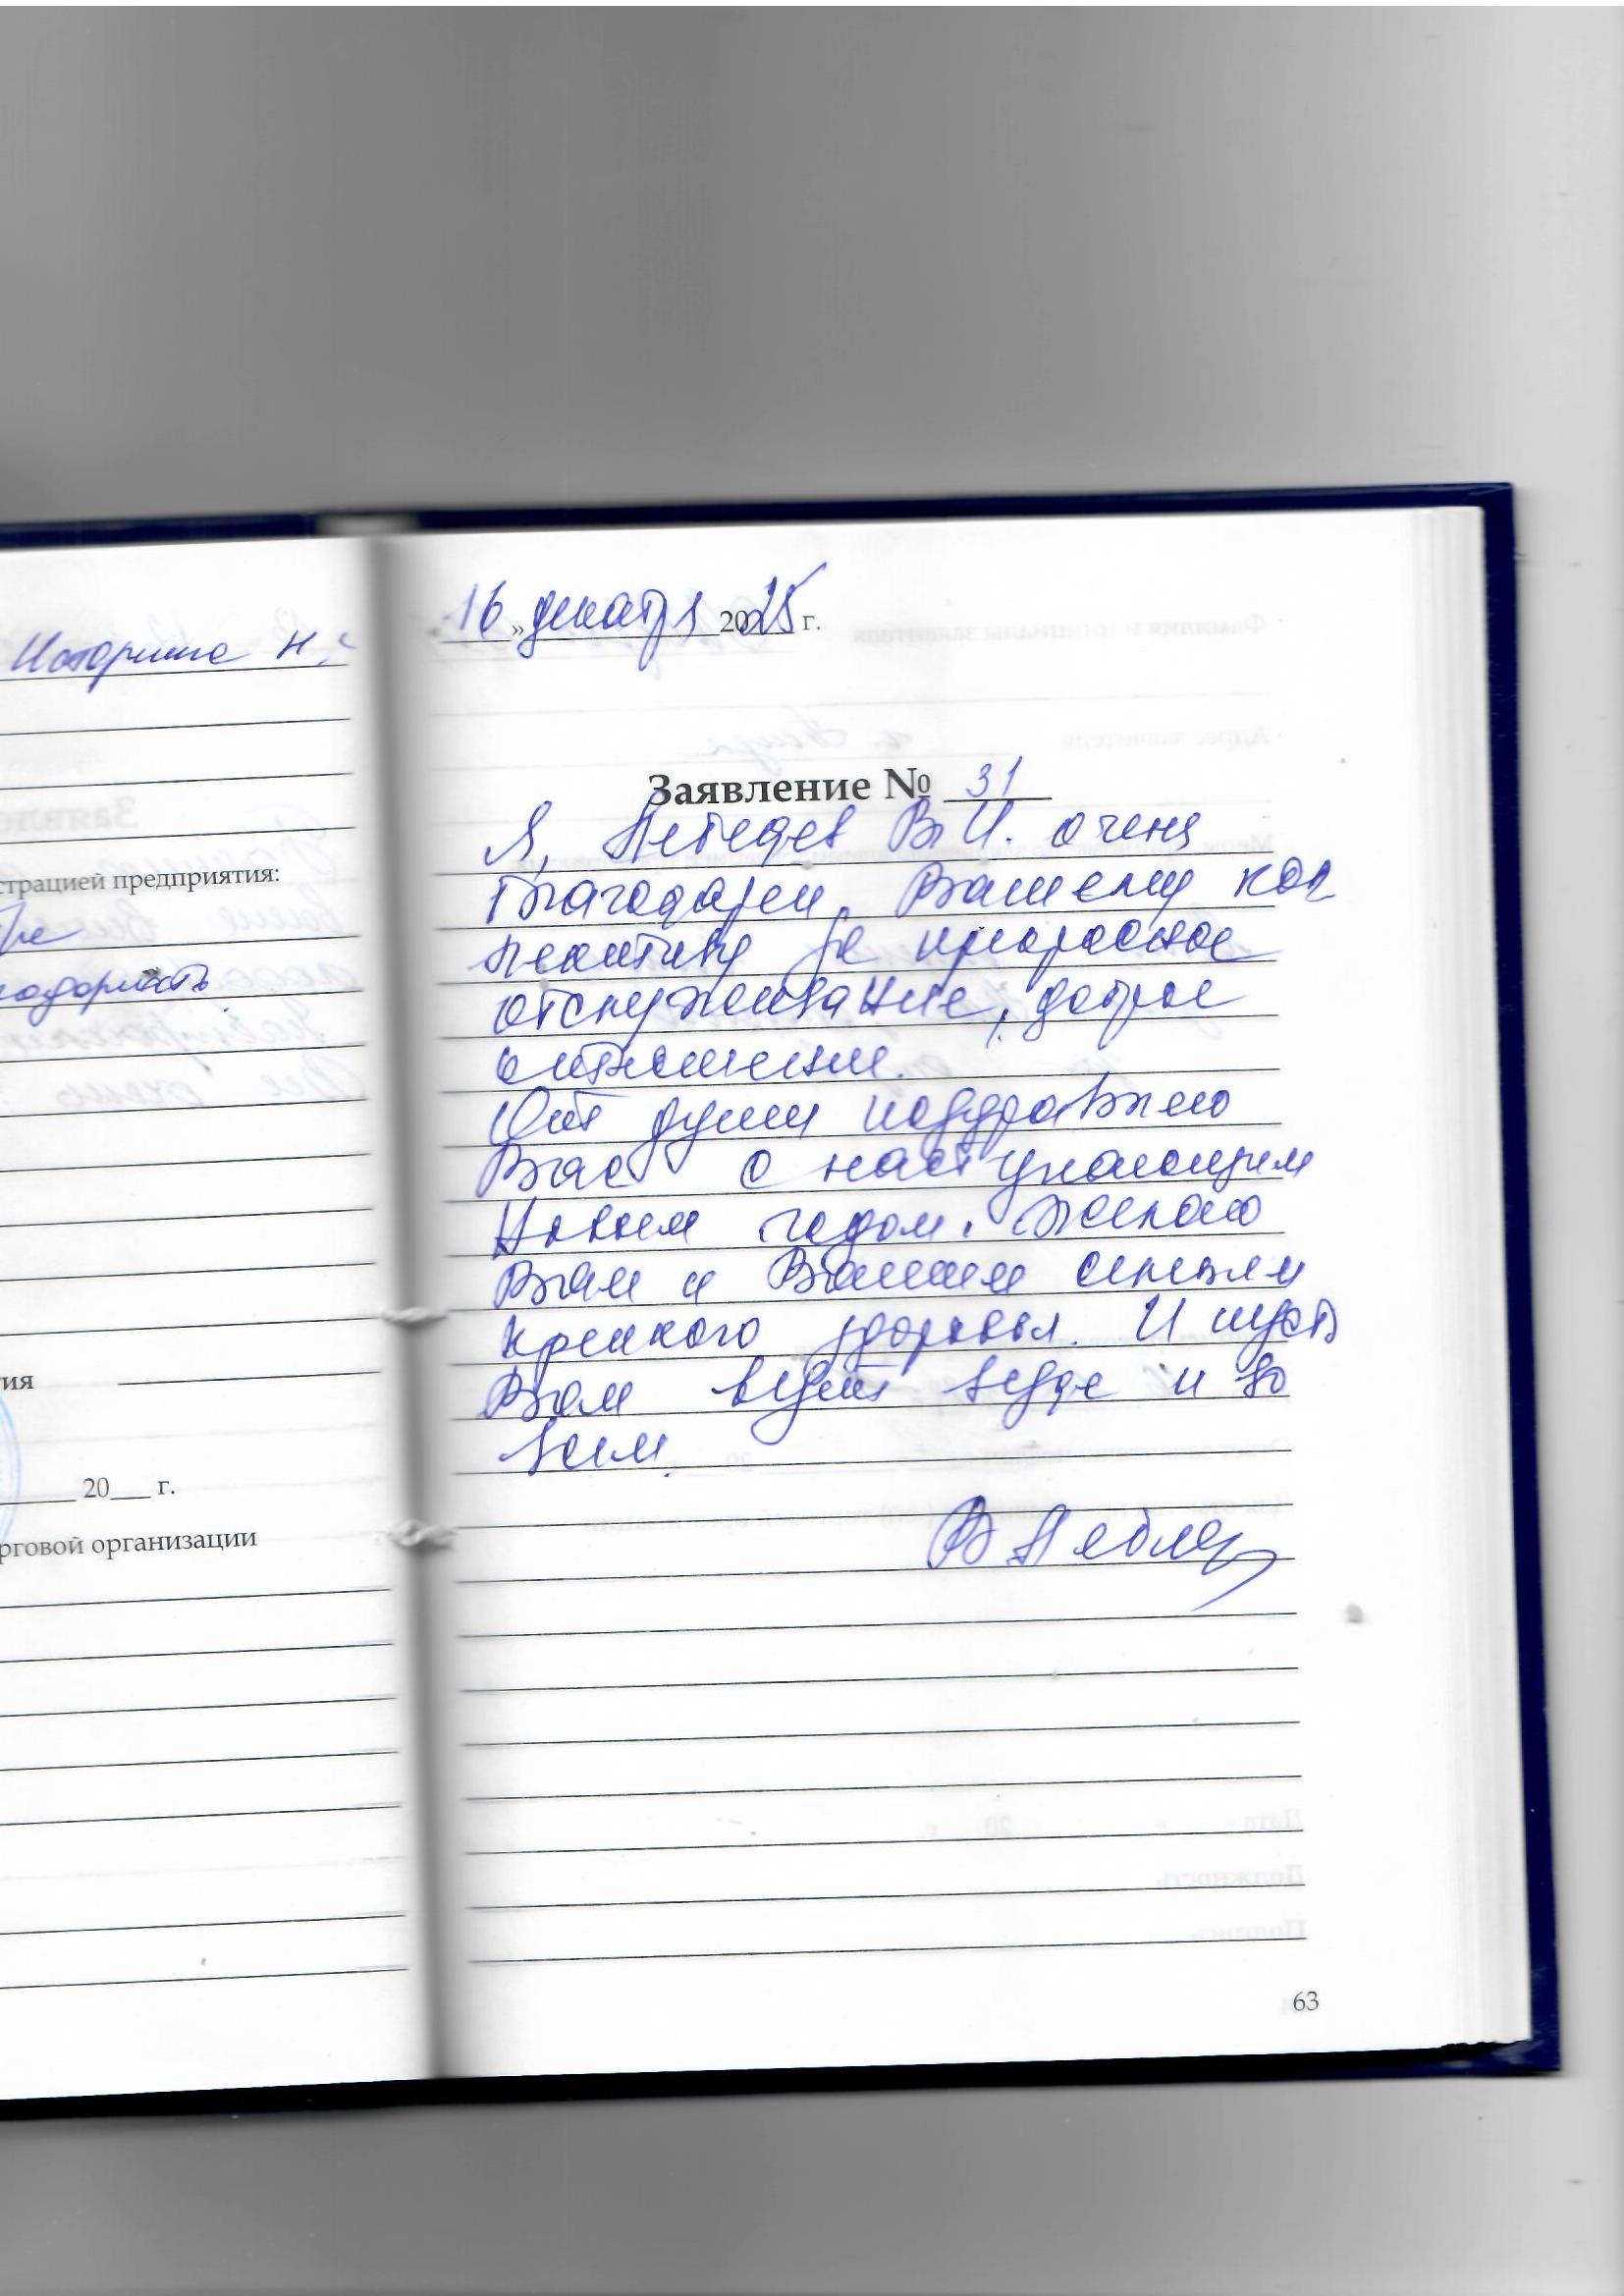 Историна Н.
страцией предприятия:
ия
20___ г.
рговой организации
16 » декабря 2025 г.
Заявление № 31
Я, Лебедев В.И. очень
благодарен Вашему кол
лективу за прекрасное
обслуживание, доброе
отношение.
От души поздравляю
Вас с наступающим
Новым годом. Желаю
Вам и Вашим семьям
крепкого здоровья. И пусть
Вам везёт везде и во
всем.
В Лебедев
63